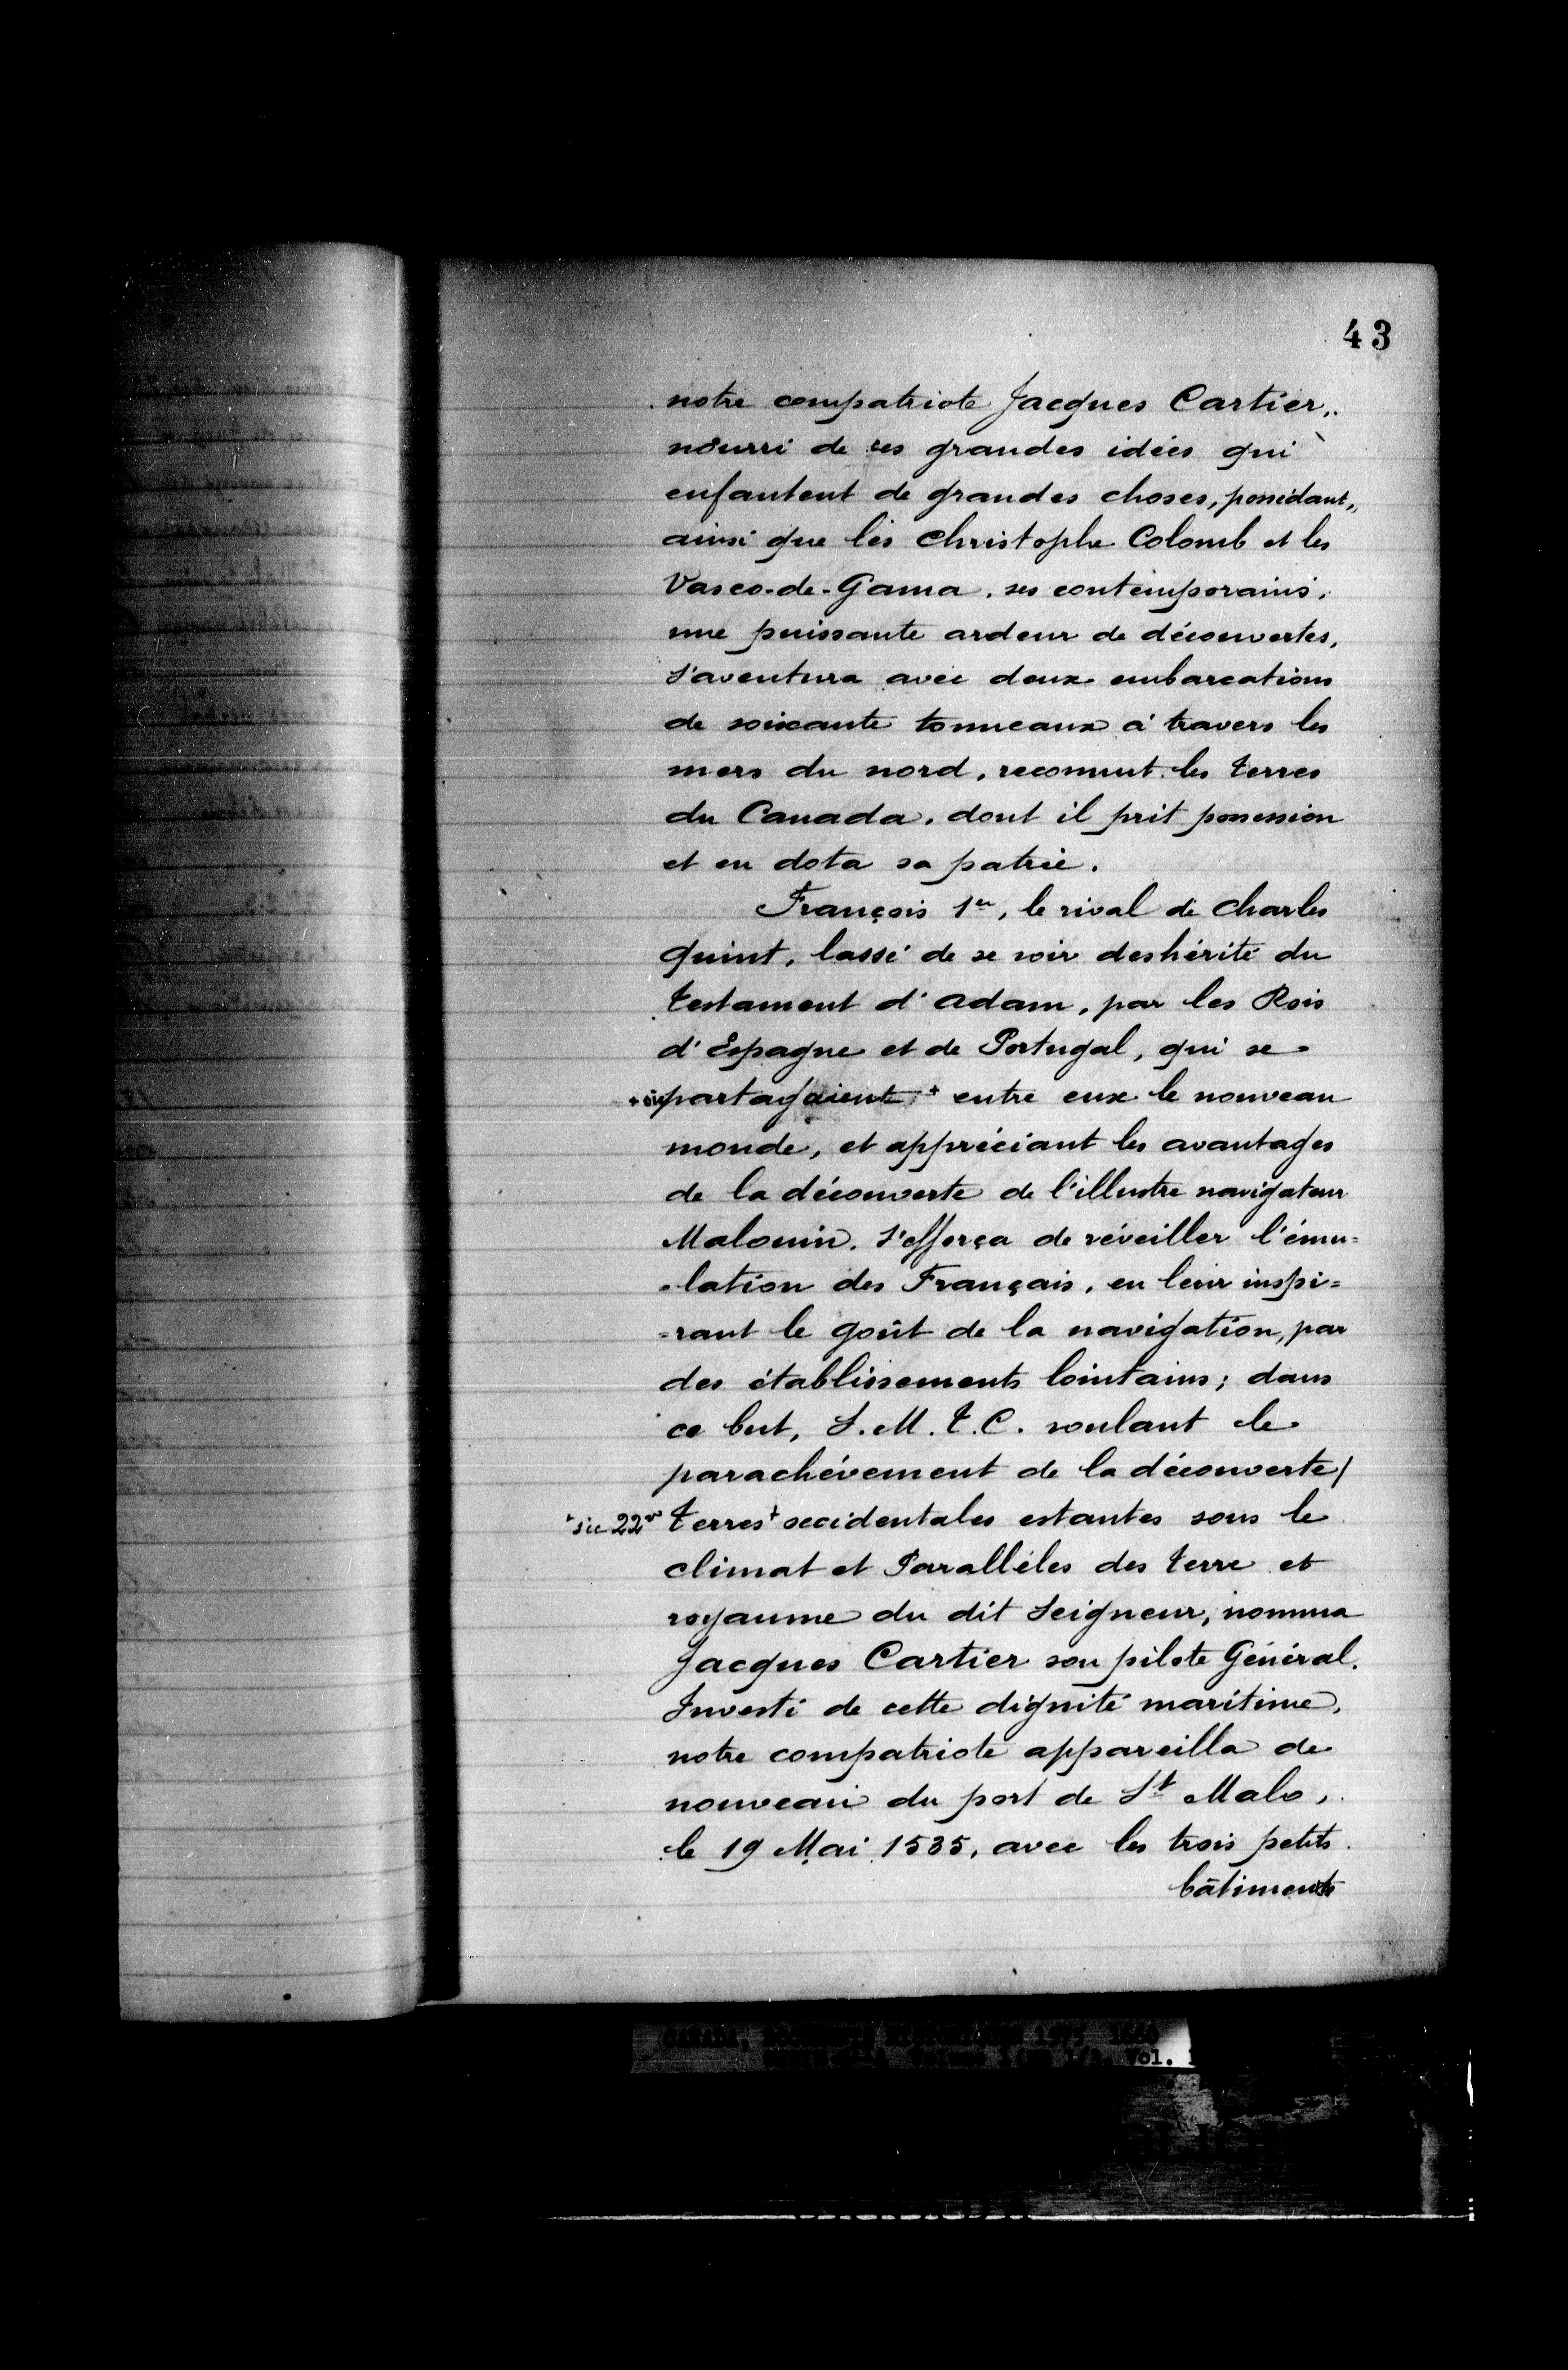 43
notre compatriote Jacques Cartier,
nourri de ces grandes idées qui
enfantent de grandes choses, possédant,
ainsi que les Christophe Colomb et les
Vasco-de-Gama, ses contemporains,
une puissante ardeur de découvertes,
s'aventura avec deux embarcations
de soixante tonneaux à travers les
mers du nord, reconnut les terres
du Canada, dont il prit possession
et en dota sa patrie.
François 1er, le rival de Charles
quint, lassé de se voir deshérité du
testament d'Adam, par les Rois
d'Espagne et de Portugal, qui se
+ sic partagaient + entre eux le nouveau
monde, et appréciant les avantages
de la découverte de l'illustre navigateur
Malouin, s'efforça de réveiller l'ému=
=lation des Français, en leur inspi=
=rant le goût de la navigation, par
des établissements lointains; dans
ce but, S. M. T. C. voulant le
parachévement de la découverte /
+ sic 22 terres + occidentales estantes sous le
climat et Paralléles des terre et
royaume du dit Seigneur, nomma
Jacques Cartier son pilote Général.
Investi de cette dignité maritime,
notre compatriote appareilla de
nouveau du port de St Malo,
le 19 Mai 1535, avec les trois petits
bâtiments
Vol.